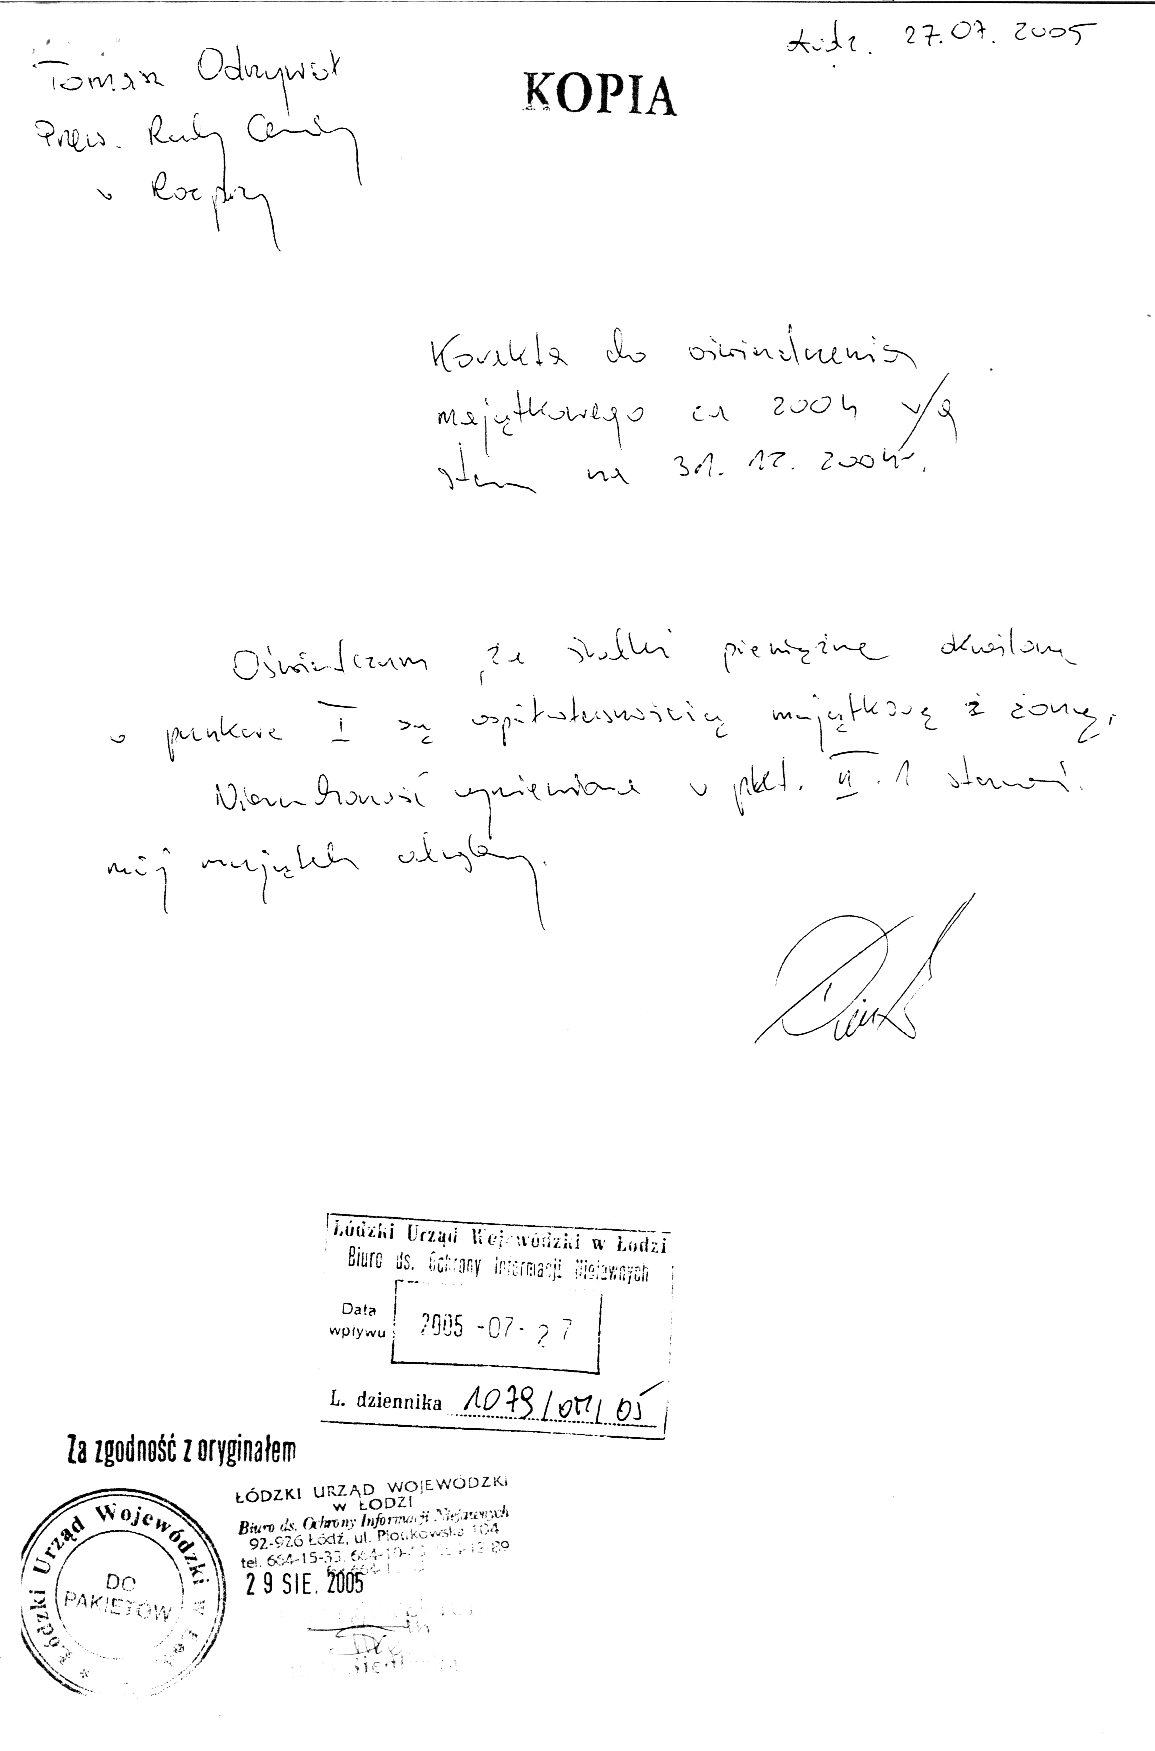 Łódź. 27.07.2005
Tomasz Odrzywół
Przew. Rady Gminy
w Rozprzy
KOPIA
Korekta do oświadczenia
majątkowego za 2004 w/g
stanu na 31.12.2004r.
Oświadczam, że środki pieniężne określone
w punkcie I są współwłasnością majątkową z żoną.
Nieruchomość wymieniona w pkt. II.1 stanowi
mój majątek odrębny.
Łódzki Urząd Wojewódzki w Łodzi
Biuro ds. Ochrony Informacji Niejawnych
Data
wpływu
2005 -07- 27
L. dziennika 1079/OM/05
Za zgodność z oryginałem
ŁÓDZKI URZĄD WOJEWÓDZKI
W ŁODZI
Biuro ds. Ochrony Informacji Niejawnych
92-926 Łódź, ul. Piotrkowska 104
tel. 664-15-33,
29 SIE. 2005
Łódzki Urząd Wojewódzki w
DO
PAKIETÓW